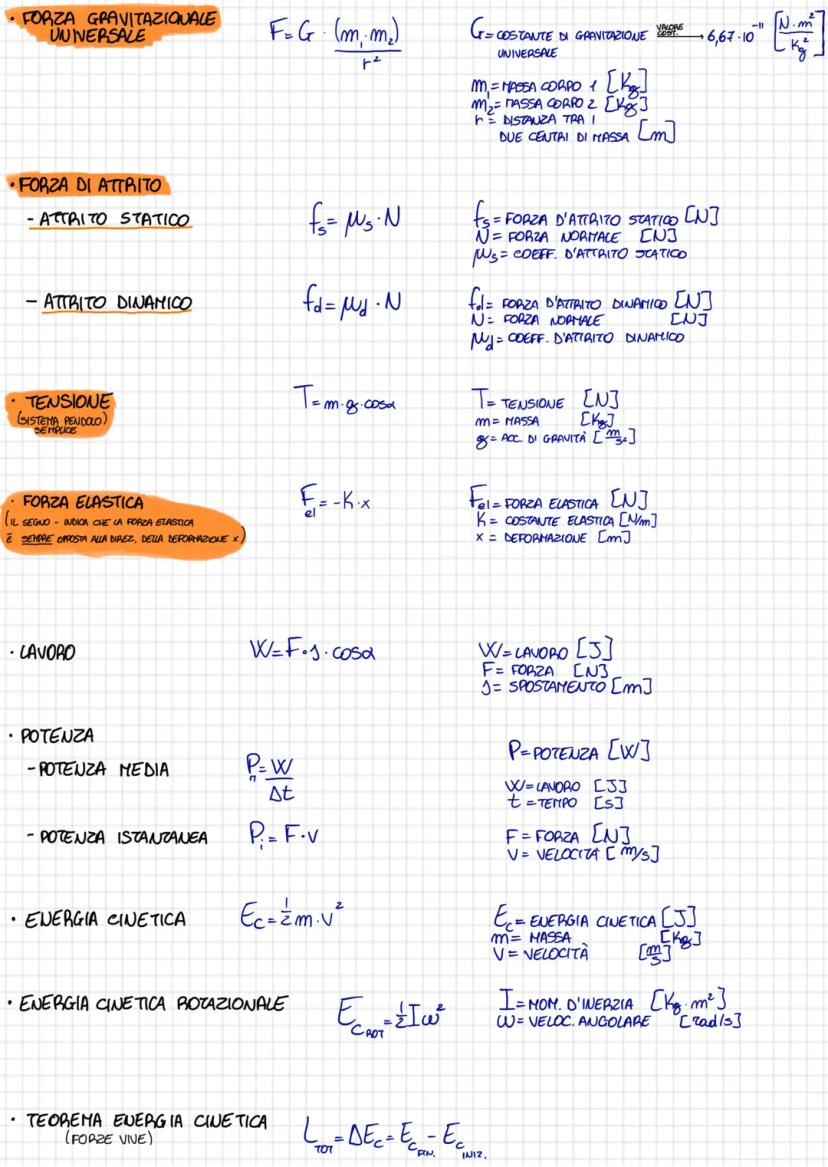 • FORZA GRAVITAZIONALE UNIVERSALE
F = G · (m₁·m₂) / r²
G = COSTANTE DI GRAVITAZIONE UNIVERSALE VALORE COST. → 6,67·10⁻¹¹ [N·m²/Kg²]
m₁ = MASSA CORPO 1 [Kg]
m₂ = MASSA CORPO 2 [Kg]
r = DISTANZA TRA I
DUE CENTRI DI MASSA [m]
• FORZA DI ATTRITO
- ATTRITO STATICO
fs = μs · N
fs = FORZA D'ATTRITO STATICO [N]
N = FORZA NORMALE [N]
μs = COEFF. D'ATTRITO STATICO
- ATTRITO DINAMICO
fd = μd · N
fd = FORZA D'ATTRITO DINAMICO [N]
N = FORZA NORMALE [N]
μd = COEFF. D'ATTRITO DINAMICO
• TENSIONE
(SISTEMA PENDOLO)
SEMPLICE
T = m·g·cosα
T = TENSIONE [N]
m = MASSA [Kg]
g = ACC. DI GRAVITÀ [m/s²]
• FORZA ELASTICA
(IL SEGNO - INDICA CHE LA FORZA ELASTICA
È SEMPRE OPPOSTA ALLA DIREZ. DELLA DEFORMAZIONE x)
Fel = -K·x
Fel = FORZA ELASTICA [N]
K = COSTANTE ELASTICA [N/m]
x = DEFORMAZIONE [m]
• LAVORO
W = F·s·cosα
W = LAVORO [J]
F = FORZA [N]
s = SPOSTAMENTO [m]
• POTENZA
- POTENZA MEDIA
Pm = W / Δt
P = POTENZA [W]
W = LAVORO [J]
t = TEMPO [s]
- POTENZA ISTANTANEA
Pi = F·v
F = FORZA [N]
V = VELOCITÀ [m/s]
• ENERGIA CINETICA
Ec = ½ m·v²
Ec = ENERGIA CINETICA [J]
m = MASSA [Kg]
V = VELOCITÀ [m/s]
• ENERGIA CINETICA ROTAZIONALE
Ec ROT = ½ I ω²
I = MOM. D'INERZIA [Kg·m²]
ω = VELOC. ANGOLARE [rad/s]
• TEOREMA ENERGIA CINETICA
(FORZE VIVE)
L TOT = ΔEc = Ec FIN. - Ec INIZ.